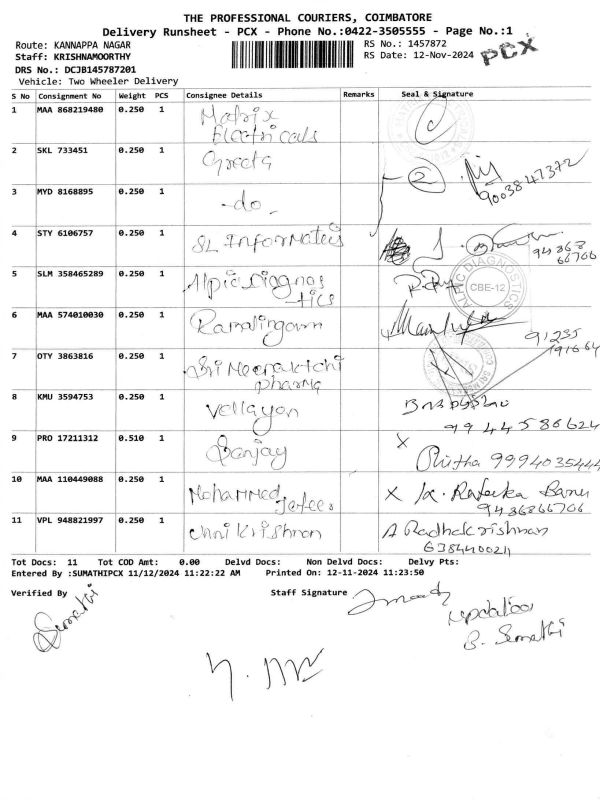 THE PROFESSIONAL COURIERS, COIMBATORE
Delivery Runsheet - PCX - Phone No.:0422-3505555 - Page No.:1
Route: KANNAPPA NAGAR
RS No.: 1457872
PCX
Staff: KRISHNAMOORTHY
RS Date: 12-Nov-2024
DRS No.: DCJB145787201
Vehicle: Two Wheeler Delivery
S No Consignment No Weight PCS Consignee Details Remarks Seal & Signature
1 MAA 868219480 0.250 1 Matrix
Electricals
2 SKL 733451 0.250 1 Greeta
2
9003847372
3 MYD 8168895 0.250 1 -do-
4 STY 6106757 0.250 1 SL Informateis
94868
66706
5 SLM 358465289 0.250 1 Alpic Diagnos
-tics
DIAGNOSTICS
CBE-12
6 MAA 574010030 0.250 1 Ramalingam
91235
7 OTY 3863816 0.250 1 Sri Meenakichi
pharma
8 KMU 3594753 0.250 1 Vellayan
9944586624
9 PRO 17211312 0.510 1 Sanjay
X
9994035444
10 MAA 110449088 0.250 1 Mohammed
Jafeer
X K. Rafeeka Banu
9486866706
11 VPL 948821997 0.250 1 Unni Krishnan
A Radhakrishnan
6384400211
Tot Docs: 11 Tot COD Amt: 0.00 Delvd Docs: Non Delvd Docs: Delvy Pts:
Entered By :SUMATHIPCX 11/12/2024 11:22:22 AM Printed On: 12-11-2024 11:23:50
Verified By
Staff Signature
Sumathi
updation
B. Sumathi